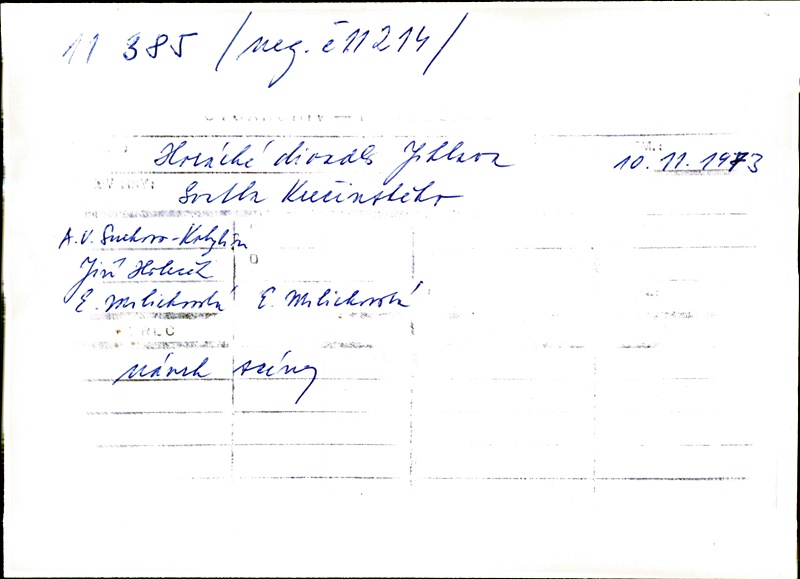 11 385 /neg. č 11214/
Horácké divadlo Jihlava 10.11.1973
Svatba Krečinského
A.V. Suchovo-Kobylin
Jiří Holeček
E. Milichovská E. Milichovská
návrh scény